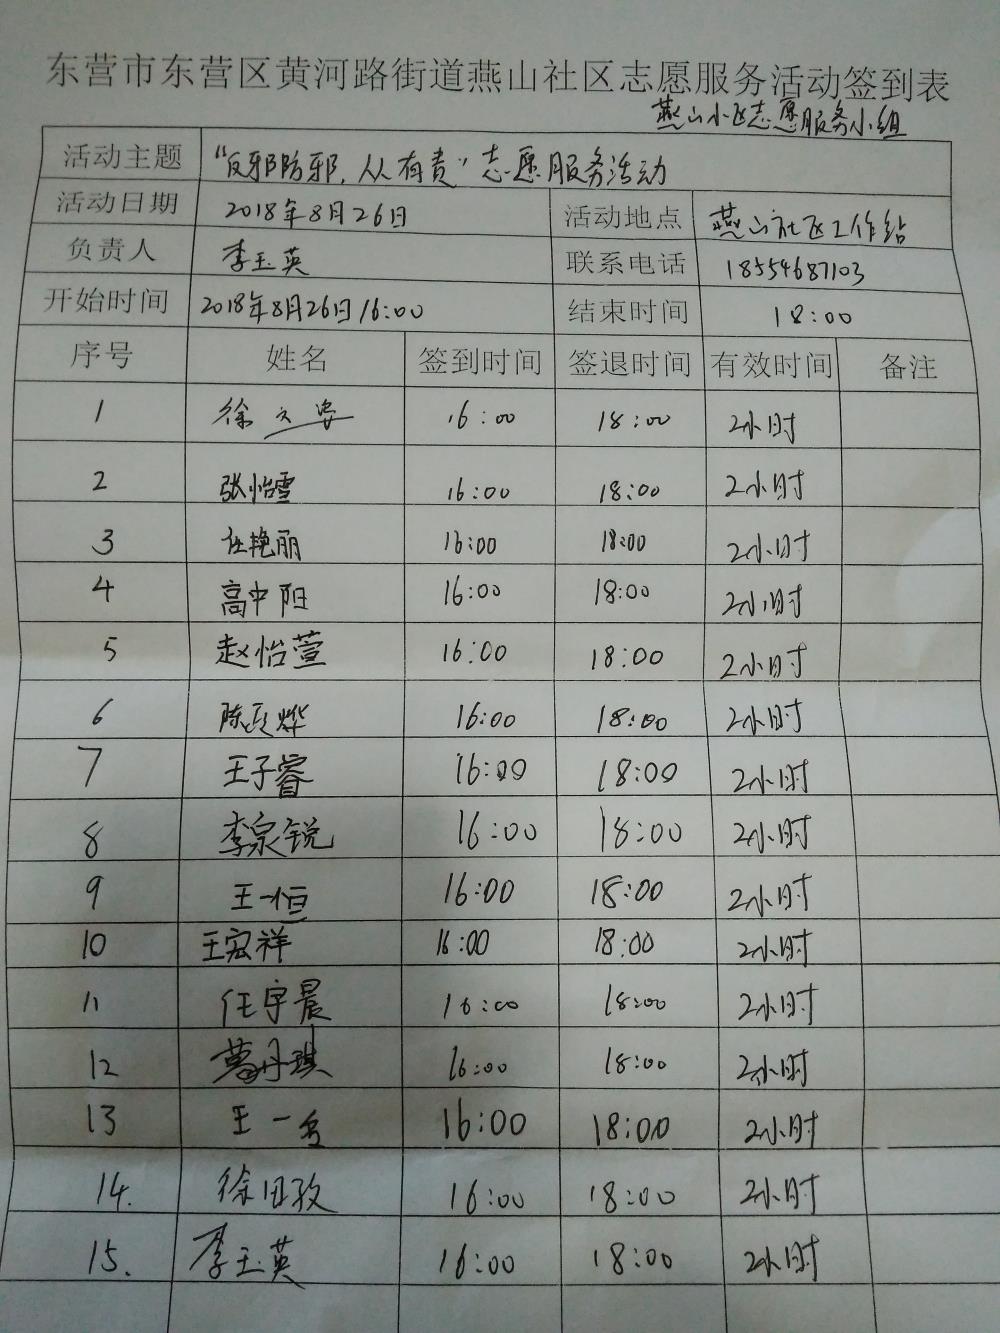 东营市东营区黄河路街道燕山社区志愿服务活动签到表
燕山小区志愿服务小组
活动主题 “反邪防邪,从有责”志愿服务活动
活动日期 2018年8月26日 活动地点 燕山社区工作站
负责人 李玉英 联系电话 18554687103
开始时间 2018年8月26日16:00 结束时间 18:00
序号 姓名 签到时间 签退时间 有效时间 备注
1 徐文姿 16:00 18:00 2小时
2 张怡雪 16:00 18:00 2小时
3 任艳丽 16:00 18:00 2小时
4 高中阳 16:00 18:00 2小时
5 赵怡萱 16:00 18:00 2小时
6 陈 烨 16:00 18:00 2小时
7 王子睿 16:00 18:00 2小时
8 李泉锐 16:00 18:00 2小时
9 王一恒 16:00 18:00 2小时
10 王宏祥 16:00 18:00 2小时
11 任宇晨 16:00 18:00 2小时
12 葛丹琪 16:00 18:00 2小时
13 王一 16:00 18:00 2小时
14. 徐田孜 16:00 18:00 2小时
15. 李玉英 16:00 18:00 2小时